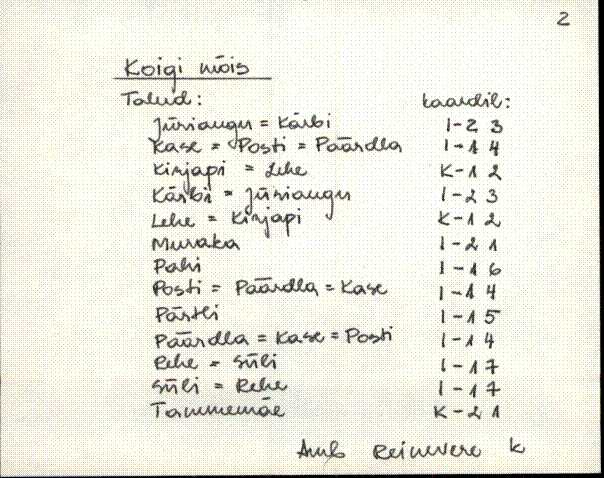 2
Koigi mõis
Talud: kaardil:
Jüriaugu = Kärbi I-2 3
Kase = Posti = Päärdla I-1 4
Kirjapi = Lehe K-1 2
Kärbi = Jüriaugu I-2 3
Lehe = Kirjapi K-1 2
Muraka I-2 1
Pahi I-1 6
Posti = Päärdla = Kase I-1 4
Pärtli I-1 5
Päärdla = Kase = Posti I-1 4
Rehe = Süli I-1 7
Süli = Rehe I-1 7
Tammemäe K-2 1
Amb Reinevere k